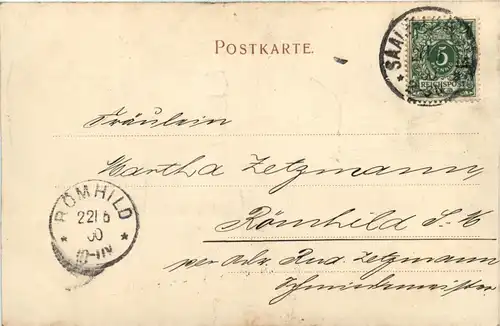 POSTKARTE.
SAAL
5
REICHSPOST
Fräulein
Martha Zetzmann,
Römhild S. M.
per Adr. Rud. Zetzmann
Schmiedemeister
RÖMHILD
22 6
00
10-11V